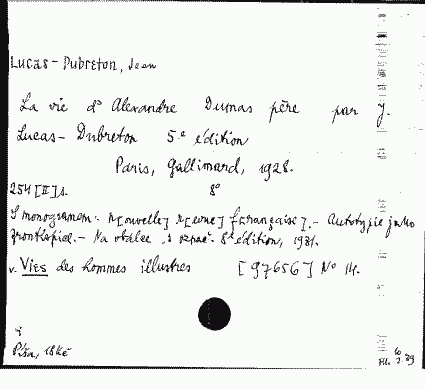 Lucas-Dubreton, Jean
La vie d' Alexandre Dumas père par J.
Lucas-Dubreton 5e édition
Paris, Gallimard, 1928.
254 [II] s. 8°
S monogramem: N[ouvelle] R[evue] F[rançaise].- Autotypie jako
frontispic.- Na obálce: édition, 1931.
v. Vies des hommes illustres [97656] No 14.
Píša, 15Kč